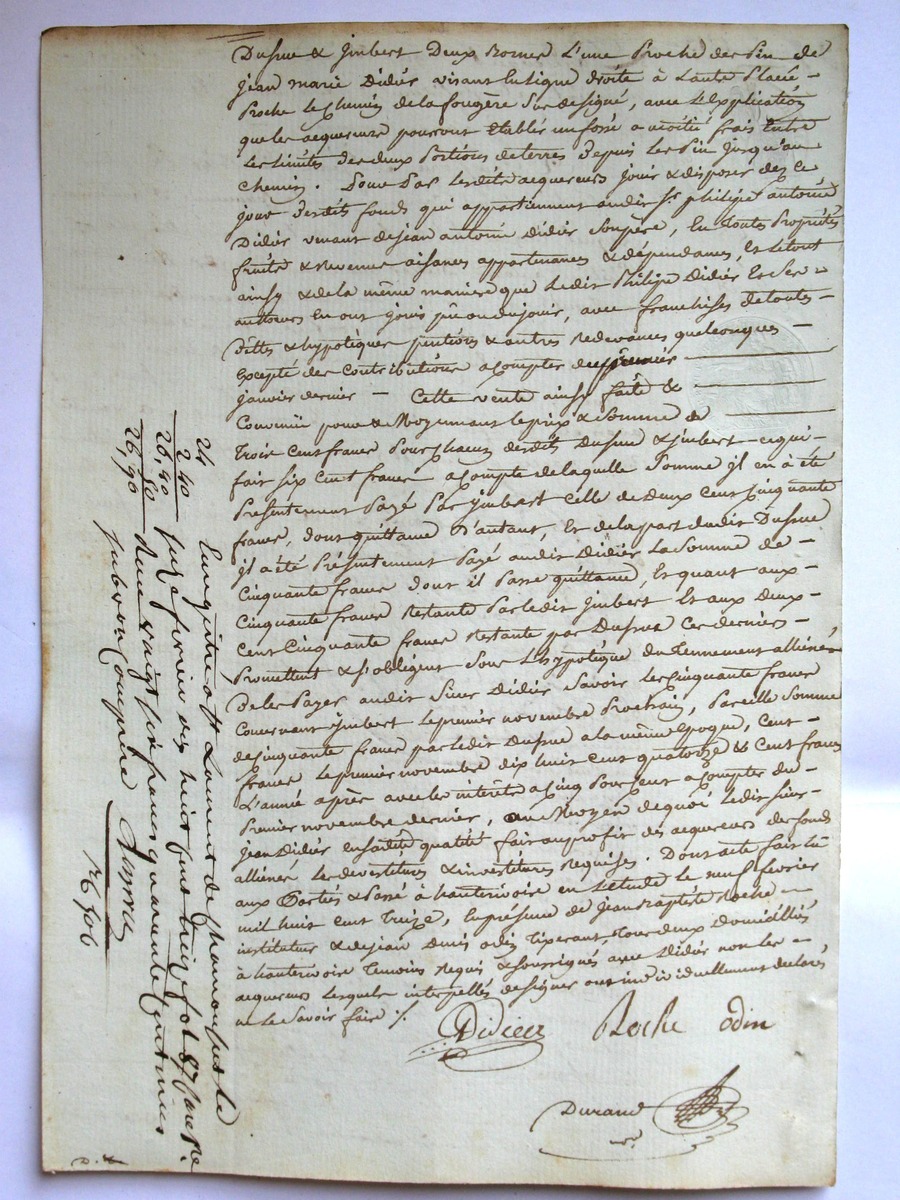 Dusnu & Jmbert Deux Bornes L'une Proche des Pin de
jean marie Didier visant En Ligne droite à L'autre Placée
Proche le Chemin de la fougère Sus designé, avec L'Explication
que les acquereurs pourront Etablir un fossé a moitié frais Entre
Les Limites des deux Portions de terres depuis Les Pin jusqu'au
chemin. Pour Par Lesdits acquereurs jouir & disposer dez Ce
jour desdits fonds qui appartiennent audit Sr philipe antoine
Didier venant de jean antoine Didier Son père, En toute Propriétés
fruits & Revenus aisances appartenances & dépendances, Et letout
ainsy & de la même maniere que Ledit Philipe Didier Et Ses
autheurs En ont jouis pû ou du jouir, avec franchises de toutes
dettes & hypotèques pentions & autres Redevances quelconques
Excepté des Contributions a Compter du premier
janvier dernier Cette vente ainsi faite &
Convenüe pour & Moyennant le prix & Somme de
trois Cent francs Pour chacun desdits Dusnu & jmbert ce qui
fait Six Cent francs a Compte de laquelle Somme il en à été
Présentement Payé Par jmbert Celle de Deux Cent Cinquante
francs, dont quittance d'autant, Et de la part dudit Dusnu
il a été Présentement Payé audit Didier La Somme de
Cinquante francs dont il Passe quittance, Et quant aux
Cinquante francs Restants Par ledit jmbert Et aux deux
Cent Cinquante francs Restants par Dusnu Ces derniers
Promettent & s'obligent Sous L'hypotèque du tennement alliéné
De les Payer audit Sieur Didier Savoir les Cinquante francs
Concernant jmbert le premier novembre Prochain, Pareille Somme
de Cinquante francs par ledit Dusnu a la même Epoque, Cent
francs le premier novembre dix huit cent quatorze & Cent francs
L'année après avec les intérêts a Cinq Pour Cent a Compter du
Premier novembre dernier, au Moyen de quoi ledit Sieur
jean Didier En sadite qualité fait au profit des acquereurs des fonds
alliénés les devestitures & investitures Requises. Dont acte fait Lû
aux Parties & Passé à hauterivoire En L'Etude le neuf fevrier
mil huit cent treize, En présence de jean Baptiste Roche
instituteur & de jean Denis odin tixerant, tous deux Domiciliés
à hauterivoire temoins Requis & Soussignés avec Didier non les
acquereurs Lesquels interpellés de signer ont individuellement declarés
ne le Savoir faire ./.
Didier Roche odin
Durand
Enregistré a St Laurent de chamousset le
seize fevrier mil huit cent treize fol 87
vingt six francs quarante centimes
24
2 40
26,40
50
26,90